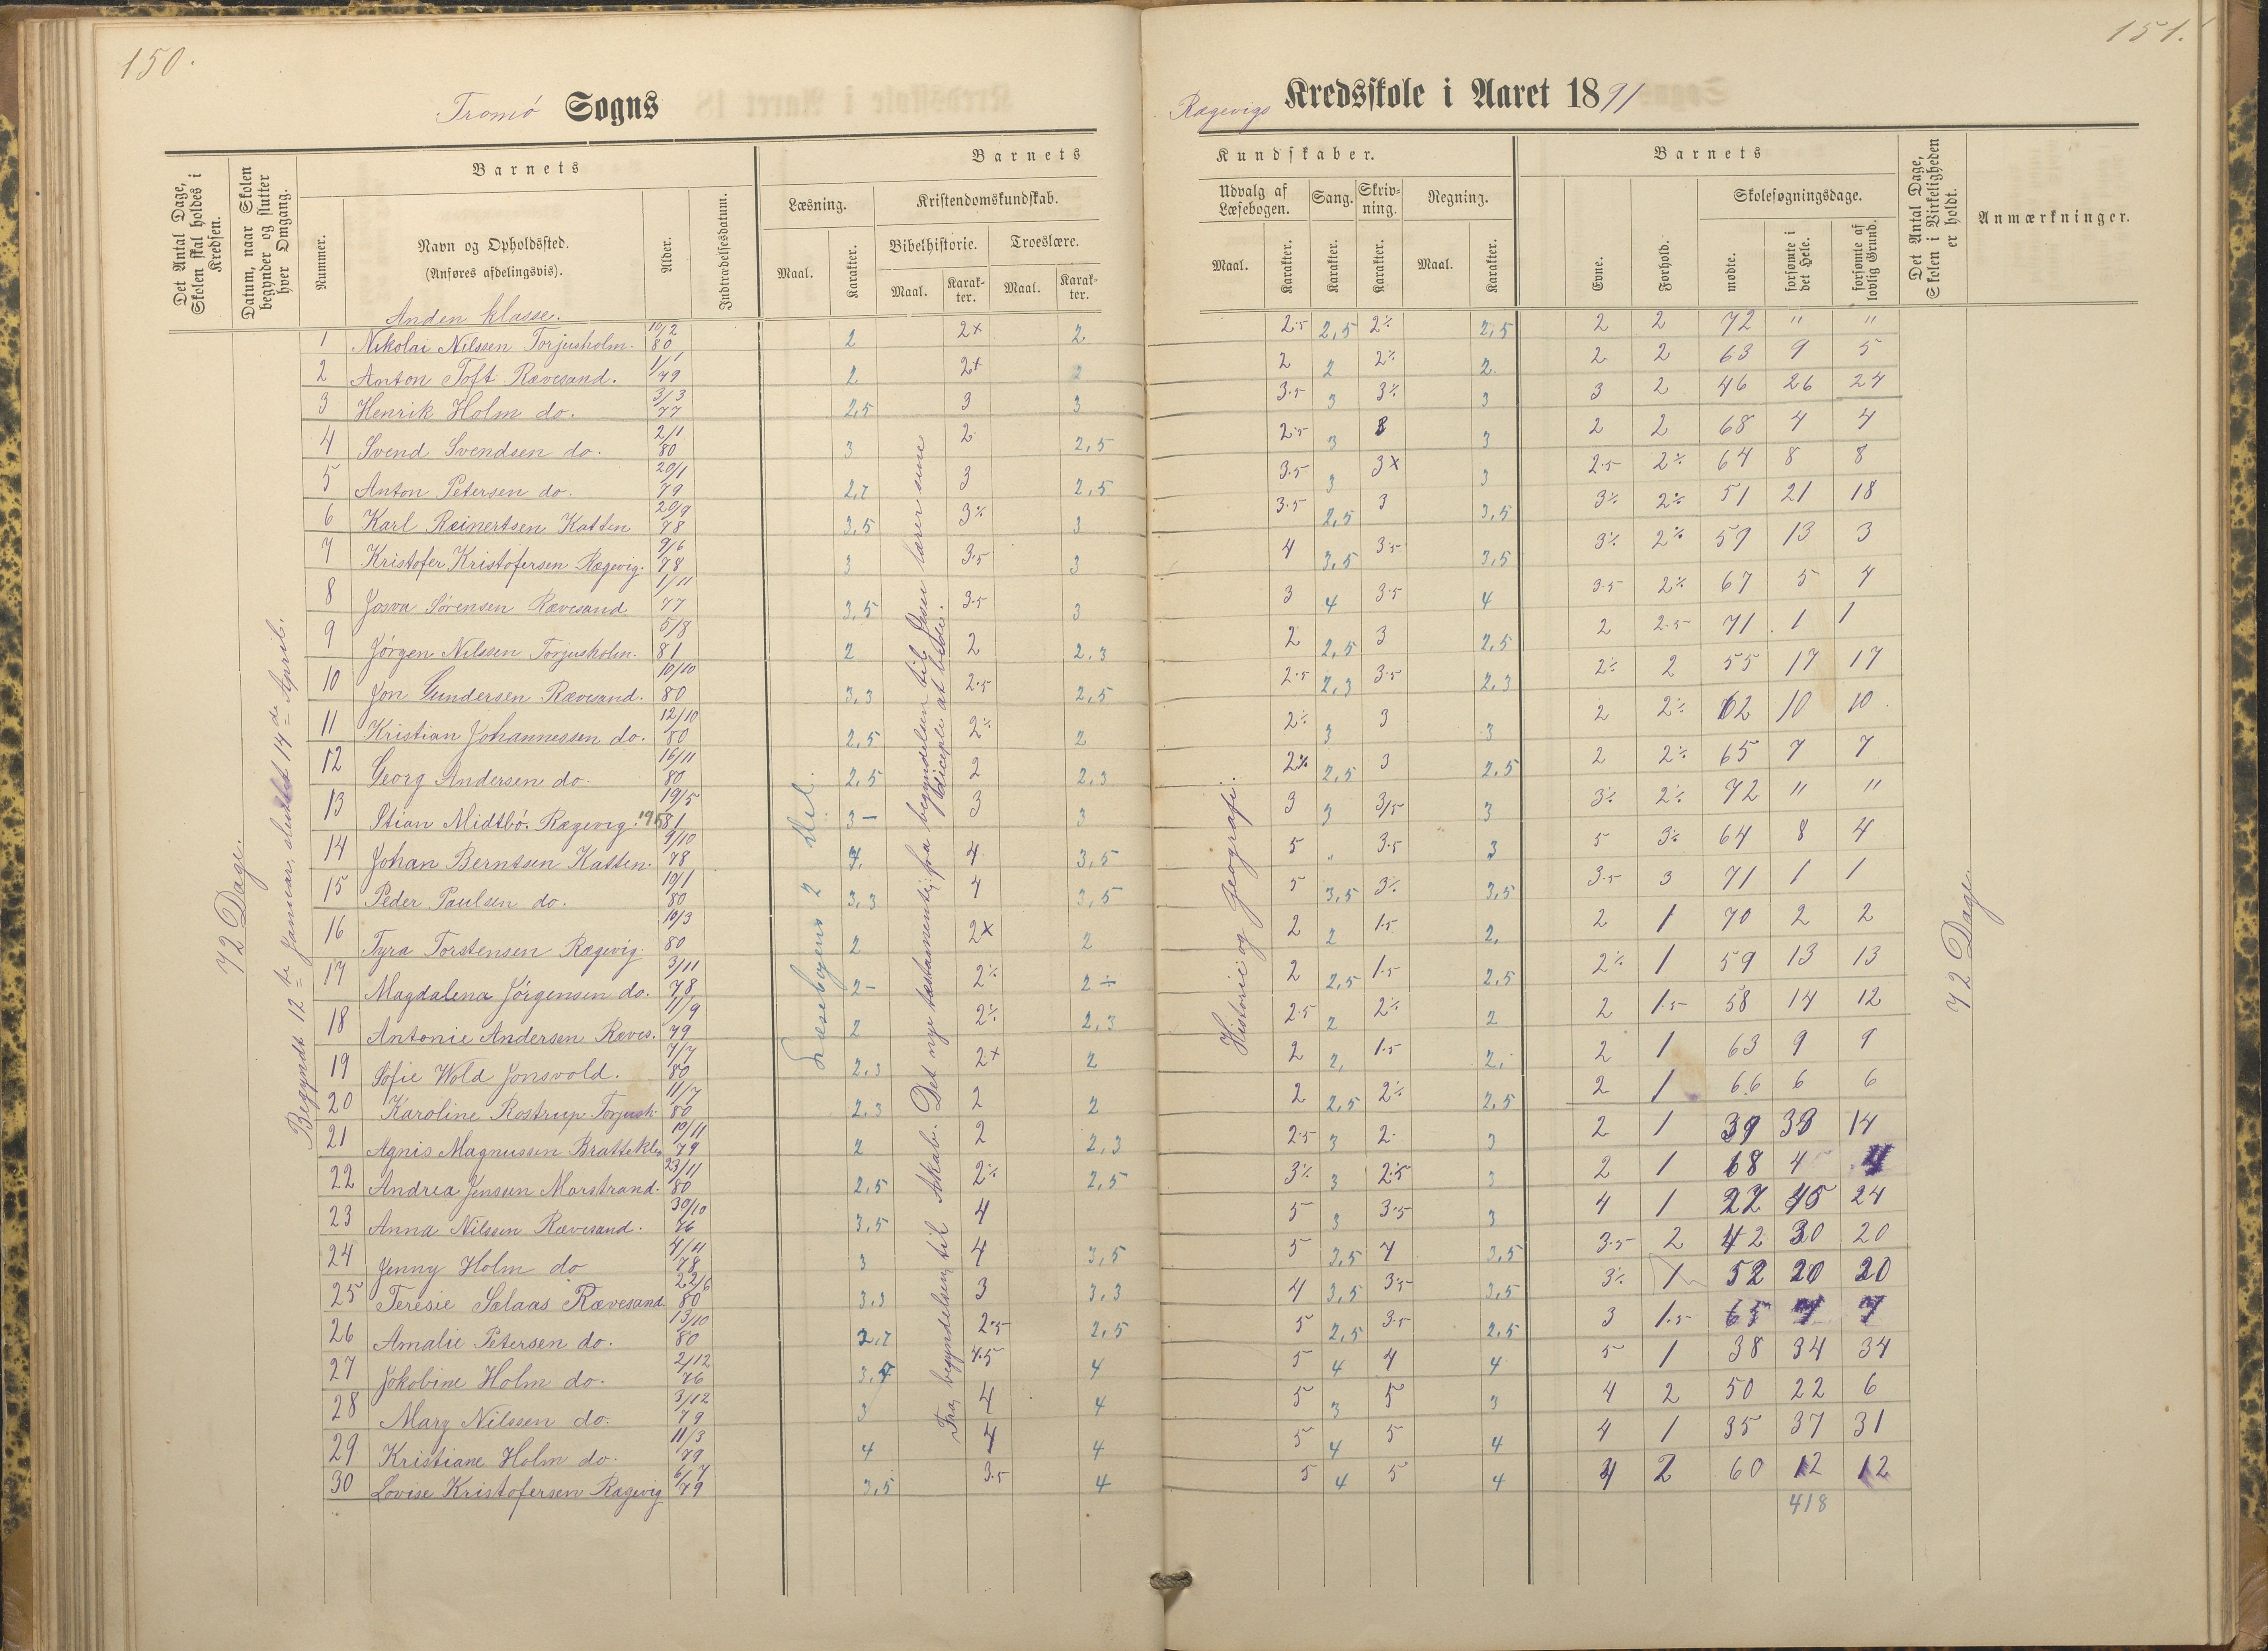 150.
151.
Tromö Sogns
Rægevigs Kredsskole i Aaret 1891
Det Antal Dage, Skolen skal holdes i Kredsen.
Datum, naar Skolen begynder og slutter hver Omgang.
Barnets
Nummer.
Navn og Opholdssted.
(Anføres afdelingsvis).
Alder.
Indtrædelsesdatum.
Barnets
Læsning.
Maal.
Karakter.
Kristendomskundskab.
Bibelhistorie.
Maal.
Karak-
ter.
Troeslære.
Maal.
Karak-
ter.
Kundskaber.
Udvalg af
Læsebogen.
Maal.
Karakter.
Sang.
Karakter.
Skriv-
ning.
Karakter.
Regning.
Maal.
Karakter.
Barnets
Evne.
Forhold.
Skolesøgningsdage.
mødte.
forsømte i det Hele.
forsømte af lovlig Grund.
Det Antal Dage, Skolen i Virkeligheden er holdt.
Anmærkninger.
72 Dage.
Begyndt 12te Januar, sluttet 14de April.
Læsebogens 2 del.
Fra begyndelsen til Akab. Det nye testamente, fra begyndelsen til Jesu lærer sine diciple at bede.
Historie og geografi.
72 Dage.
Anden klasse.
1 Nikolai Nilssen Torjusholm. 10/2 80 2 2+ 2 2.5 2,5 2÷ 2,5 2 2 72 " "
2 Anton Toft Rævesand. 1/1 79 2 2+ 2 2 2 2÷ 2 2 2 63 9 5
3 Henrik Holm do. 3/3 77 2,5 3 3 3.5 3 3÷ 3 3 2 46 26 24
4 Svend Svendsen do. 2/1 80 3 2 2,5 2.5 3 3 2 2 68 4 4
5 Anton Petersen do. 20/1 79 2,7 3 2,5 3.5 3 3+ 3 2.5 2÷ 64 8 8
6 Karl Reinertsen Katten 20/9 78 3,5 3÷ 3 3.5 2,5 3 3,5 3÷ 2÷ 51 21 18
7 Kristofer Kristofersen Rægevig. 9/6 78 3 3.5 3 4 3,5 3.5 3,5 3÷ 2÷ 59 13 3
8 Josva Sørensen Rævesand 1/11 77 3,5 3.5 3 3 4 3.5 4 3.5 2÷ 67 5 4
9 Jörgen Nilssen Torjusholm. 5/8 81 2 2 2,3 2 2,5 3 2,5 2 2.5 71 1 1
10 Jon Gundersen Rævesand. 10/10 80 3,3 2.5 2,5 2.5 2,3 3.5 2,3 2÷ 2 55 17 17
11 Kristian Johannessen do. 12/10 80 2,5 2÷ 2 2÷ 3 3 3 2 2÷ 62 10 10
12 Georg Andersen do. 16/11 80 2,5 2 2,3 2÷ 2,5 3 2,5 2 2÷ 65 7 7
13 Stian Midtbö. Rægevig. 19/5 81 3- 3 3 3 3 3/5 3 3÷ 2÷ 72 " "
14 Johan Berntsen Katten. 9/10 78 4 3,5 5 " 3.5 3 5 3÷ 64 8 4
15 Peder Paulsen do. 10/1 80 3,3 4 3,5 5 3,5 3÷ 3,5 3.5 3 71 1 1
16 Tyra Torstensen Rægevig. 10/3 80 2 2+ 2 2 2 1.5 2, 2 1 70 2 2
17 Magdalena Jörgensen do. 3/11 78 2- 2÷ 2÷ 2 2,5 1.5 2,5 2÷ 1 59 13 13
18 Antonie Andersen Ræves. 11/9 79 2 2÷ 2,3 2.5 2 2÷ 2 2 1.5 58 14 12
19 Sofie Wold Jonsvold. 7/7 80 2,3 2+ 2 2 2, 1.5 2, 2 1 63 9 9
20 Karoline Rostrup Torjush. 11/7 80 2,3 2 2 2 2,5 2÷ 2,5 2 1 66 6 6
21 Agnis Magnussen Brattekle. 10/11 79 2 2 2,3 2.5 3 2 3 2 1 39 33 14
22 Andrea Jensen Marstrand. 23/11 80 2,5 2÷ 2,5 3÷ 3 2.5 3 2 1 68 4 4
23 Anna Nilssen Rævesand. 30/10 76 3,5 4 5 3 3.5 3 4 1 27 45 24
24 Jenny Holm do 4/11 78 3 4 3,5 5 3,5 4 3,5 3.5 2 42 30 20
25 Teresie Salaas Rævesand. 22/6 80 3,3 3 3,3 4 3,5 3.5 3,5 3÷ 1 52 20 20
26 Amalie Petersen do. 13/10 80 2,7 2.5 2,5 5 2,5 3.5 2,5 3 1.5 65 7 7
27 Jokobine Holm do. 2/12 76 4.5 4 5 4 4 4 5 1 38 34 34
28 Mary Nilssen do. 3/12 79 3 4 4 5 3 5 3 4 2 50 22 6
29 Kristiane Holm do. 11/3 79 4 4 4 5 4 5 4 4 1 35 37 31
30 Lovise Kristofersen Rægevig 6/7 79 3,5 3.5 4 5 4 5 4 4 2 60 12 12
418